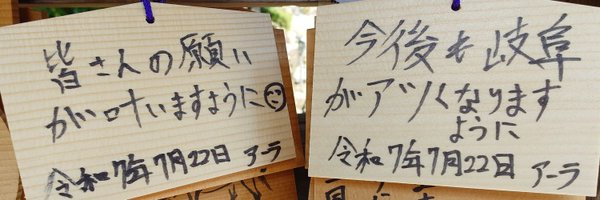 皆さんの願い
が叶いますように
令和7年7月22日 アーラ
今後も岐阜
がアツくなります
ように
令和7年7月22日 アーラ